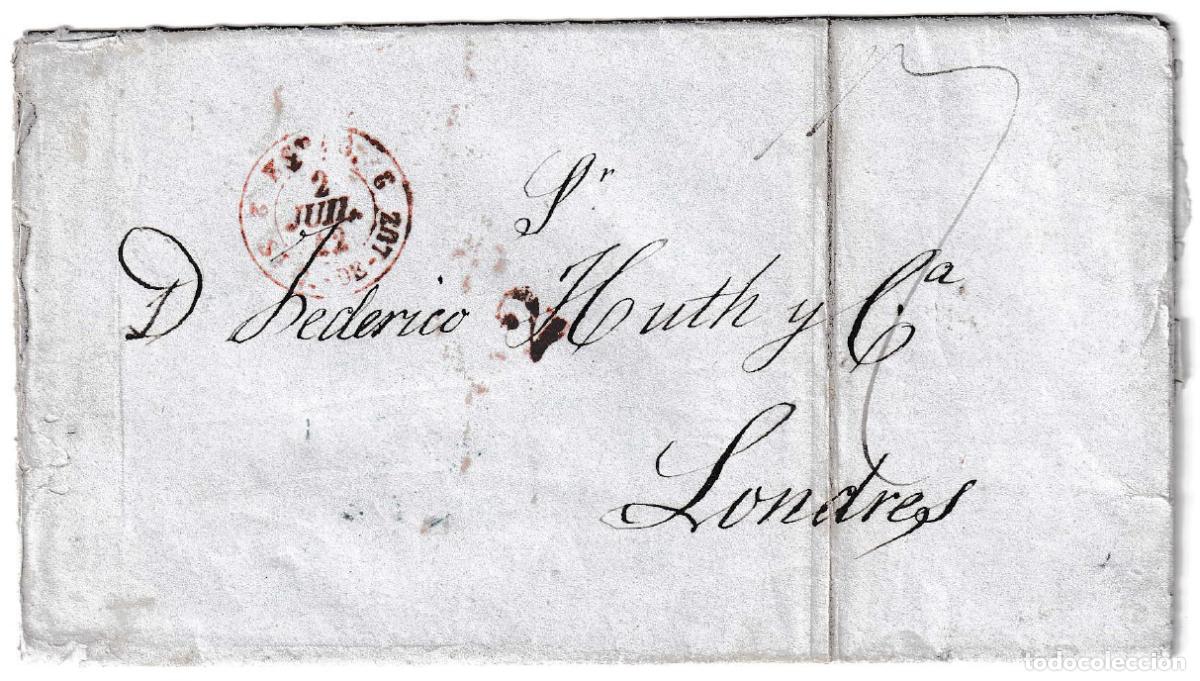 2
JUIL.
Sr
D Federico Huth y Ca.
Londres
todocolección